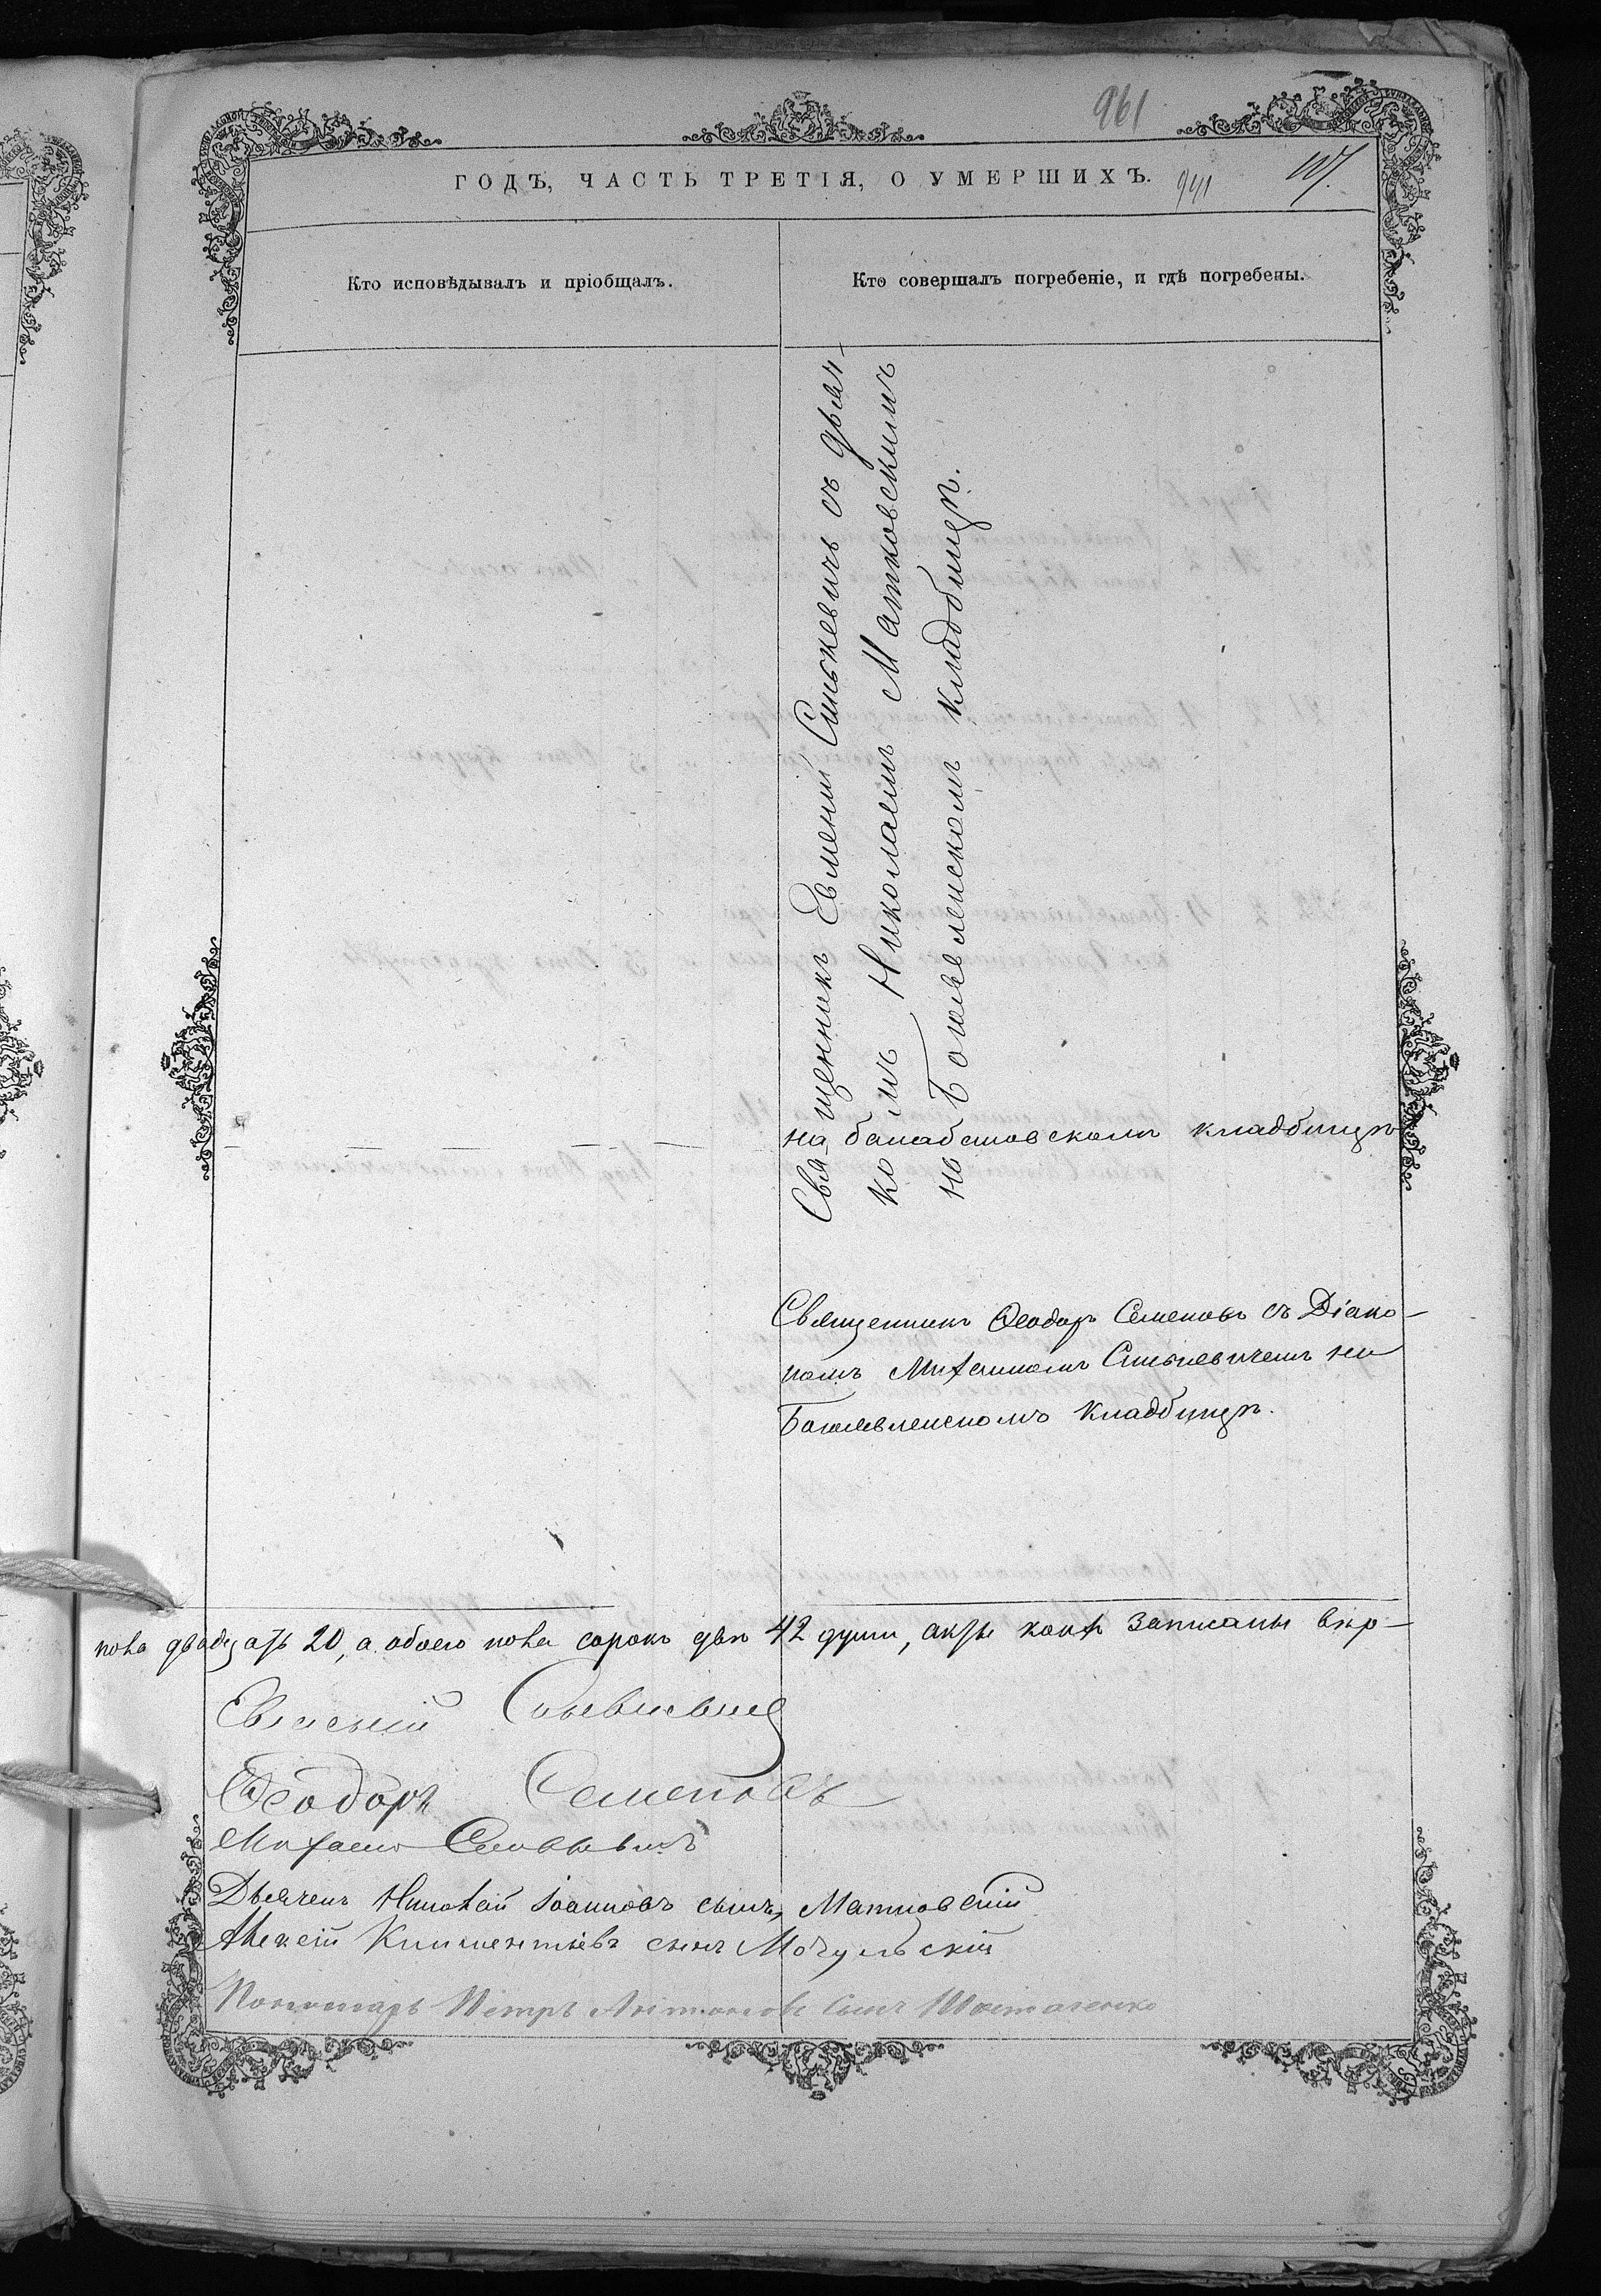 961
ГОДЪ, ЧАСТЬ ТРЕТІЯ, О УМЕРШИХЪ.
941
Кто исповѣдывалъ и пріобщалъ.
Кто совершалъ погребеніе, и гдѣ погребены.
Священникъ Евмений Синькевичъ съ дьяч-
комъ Николаемъ Матковскимъ
на Богоявленскомъ кладбищѣ.
на балабановскомъ кладбищѣ
Священникъ Ѳеодоръ Семеновъ съ Діако-
номъ Михаиломъ Синькевичемъ на
Богоявленскомъ кладбищѣ.
пола двадцать 20, а обоего пола сорокъ двѣ 42 души, акты коихъ записаны вѣр-
Евмений Синькевичъ
Ѳеодоръ Семеновъ
Михаилъ Синькевичъ
Дьячекъ Николай Іоанновъ сынъ Матковскій
Алексій Климентьевъ сынъ Мочульскій
Пономарь Петръ Антоновъ сынъ